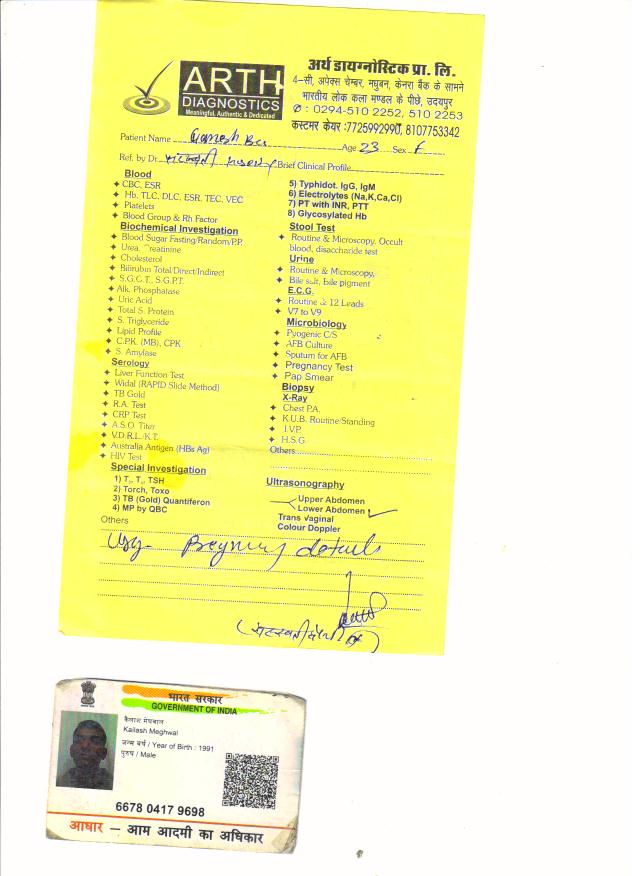 ARTH
DIAGNOSTICS
Meaningful, Authentic & Dedicated
अर्थ डायग्नोस्टिक प्रा. लि.
4-सी, अपेक्स चेम्बर, मधुबन, केनरा बैंक के सामने
भारतीय लोक कला मण्डल के पीछे, उदयपुर
✆ : 0294-510 2252, 510 2253
कस्टमर केयर :7725992990, 8107753342
Patient Name Age 23 Sex F
Ref. by Dr. Brief Clinical Profile
Blood
✦ CBC, ESR
✦ Hb, TLC, DLC, ESR, TEC, VEC
✦ Platelets
✦ Blood Group & Rh Factor
Biochemical Investigation
✦ Blood Sugar Fasting/Random/P.P.
✦ Urea, Creatinine
✦ Cholesterol
✦ Bilirubin Total/Direct/Indirect
✦ S.G.O.T., S.G.P.T.
✦ Alk. Phosphatase
✦ Uric Acid
✦ Total S. Protein
✦ S. Triglyceride
✦ Lipid Profile
✦ C.P.K. (MB), CPK
✦ S. Amylase
Serology
✦ Liver Function Test
✦ Widal (RAPID Slide Method)
✦ TB Gold
✦ R.A. Test
✦ CRP Test
✦ A.S.O. Titer
✦ V.D.R.L./K.T.
✦ Australia Antigen (HBs Ag)
✦ HIV Test
Special Investigation
1) T₃, T₄, TSH
2) Torch, Toxo
3) TB (Gold) Quantiferon
4) MP by QBC
Others
5) Typhidot. IgG, IgM
6) Electrolytes (Na,K,Ca,Cl)
7) PT with INR, PTT
8) Glycosylated Hb
Stool Test
✦ Routine & Microscopy, Occult
blood, disaccharide test
Urine
✦ Routine & Microscopy,
✦ Bile salt, bile pigment
E.C.G.
✦ Routine & 12 Leads
✦ V7 to V9
Microbiology
✦ Pyogenic C/S
✦ AFB Culture
✦ Sputum for AFB
✦ Pregnancy Test
✦ Pap Smear
Biopsy
X-Ray
✦ Chest P.A.
✦ K.U.B. Routine/Standing
✦ I.V.P.
✦ H.S.G.
Others
Ultrasonography
Upper Abdomen
Lower Abdomen ✓
Trans Vaginal
Colour Doppler
भारत सरकार
GOVERNMENT OF INDIA
कैलाश मेघवाल
Kailash Meghwal
जन्म वर्ष / Year of Birth : 1991
पुरुष / Male
6678 0417 9698
आधार – आम आदमी का अधिकार